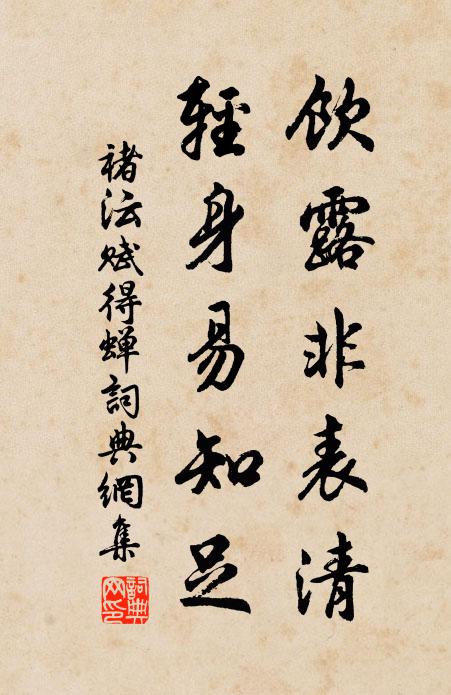 飲露非表清
輕身易知足
褚沄賦得蟬詞典網集
詞典
网印